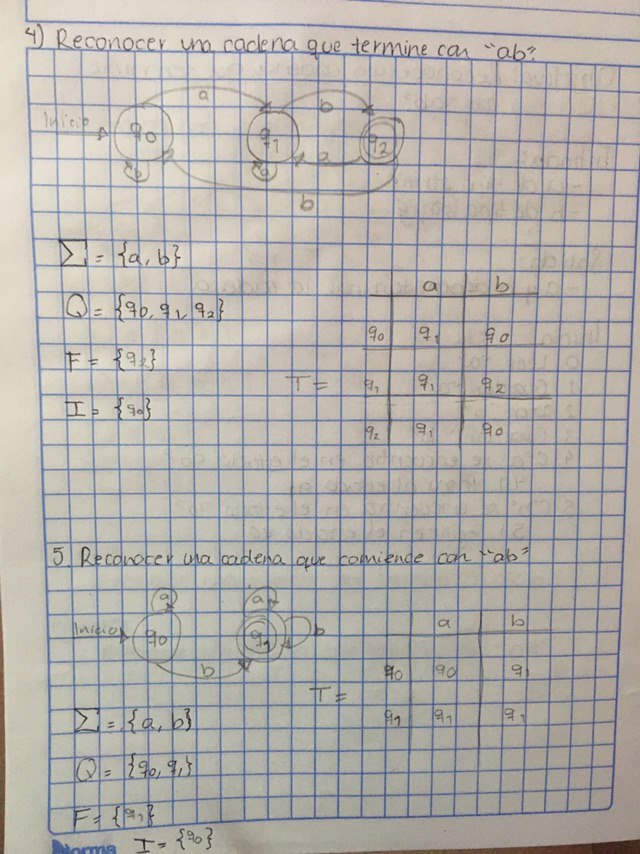 4) Reconocer una cadena que termine con "ab".
a b
Inicio q0 q1 q2
b a a
b
Σ = {a, b}
Q = {q0, q1, q2}
F = {q2}
I = {q0}
T =
a b
q0 q1 q0
q1 q1 q2
q2 q1 q0
5 Reconocer una cadena que comience con "ab"
a a
Inicio q0 q1 b
b
Σ = {a, b}
Q = {q0, q1}
F = {q1}
I = {q0}
T =
a b
q0 q0 q1
q1 q1 q1
Norma